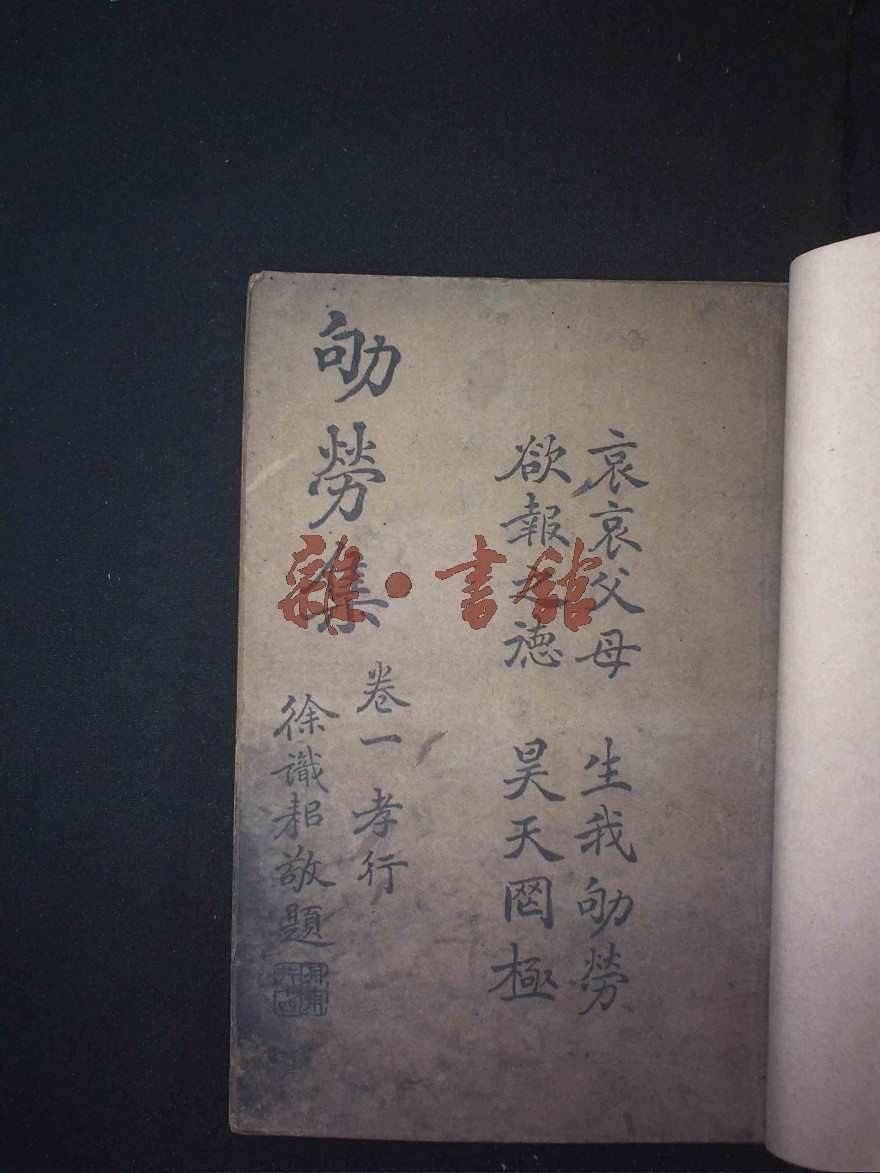 哀哀父母　生我劬勞
欲報之德　昊天罔極
劬勞集
卷一　孝行
徐識耜敬題
雜·書館